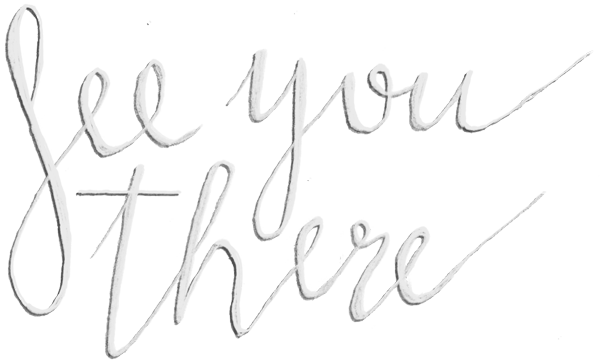 See you
there